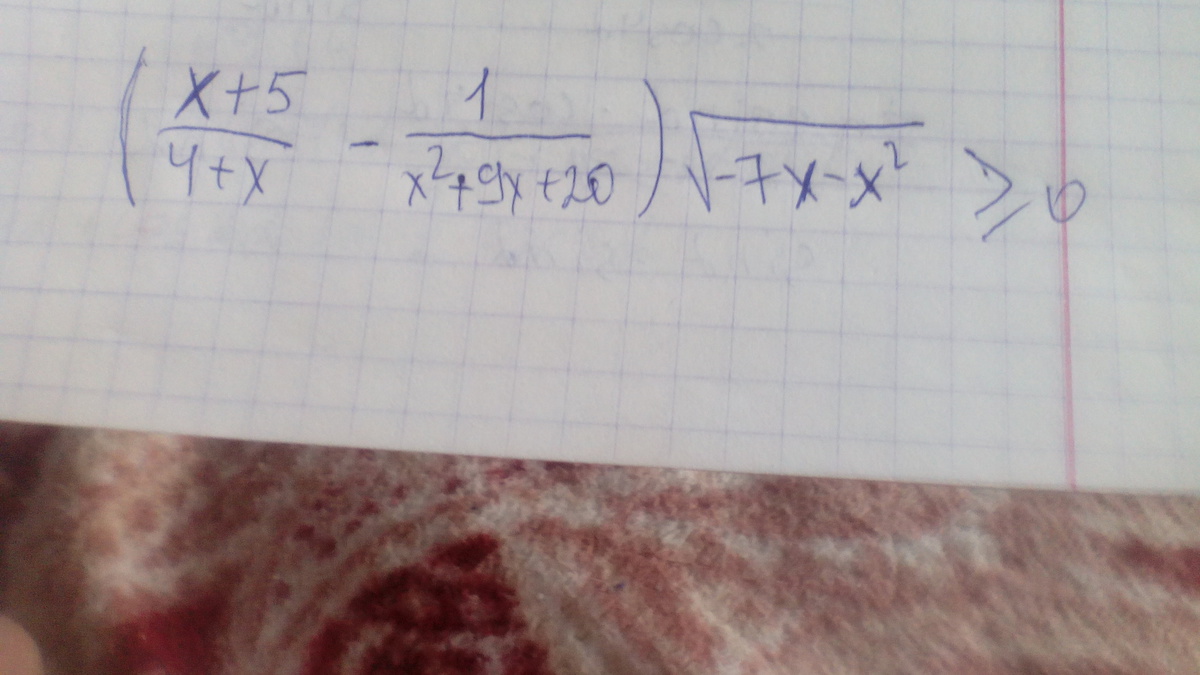 ( x+5 / 4+x - 1 / x²+9x+20 ) √-7x-x² ≥ 0